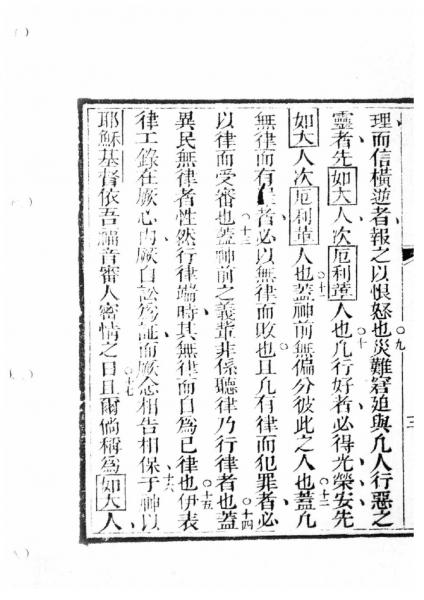 三
理而信橫逆者報之以恨怒也九災難窘迫與凡人行惡之
靈者先如大人次厄利葢人也十凡行好者必得光榮安先
如大人次厄利葢人也十一葢神前無偏分彼此之人也十二葢凡
無律而有者必以無律而敗也且凡有律而犯罪者必
以律而受審也十三葢神前之義葢非係聽律乃行律者也十四葢
異民無律者性然行律端時其無律而自為己律也十五伊表
律工錄在厥心內厥自訟為証而厥念相告相保于神以十六
耶穌基督依吾福音審人密情之日且十七爾倘稱為如大人